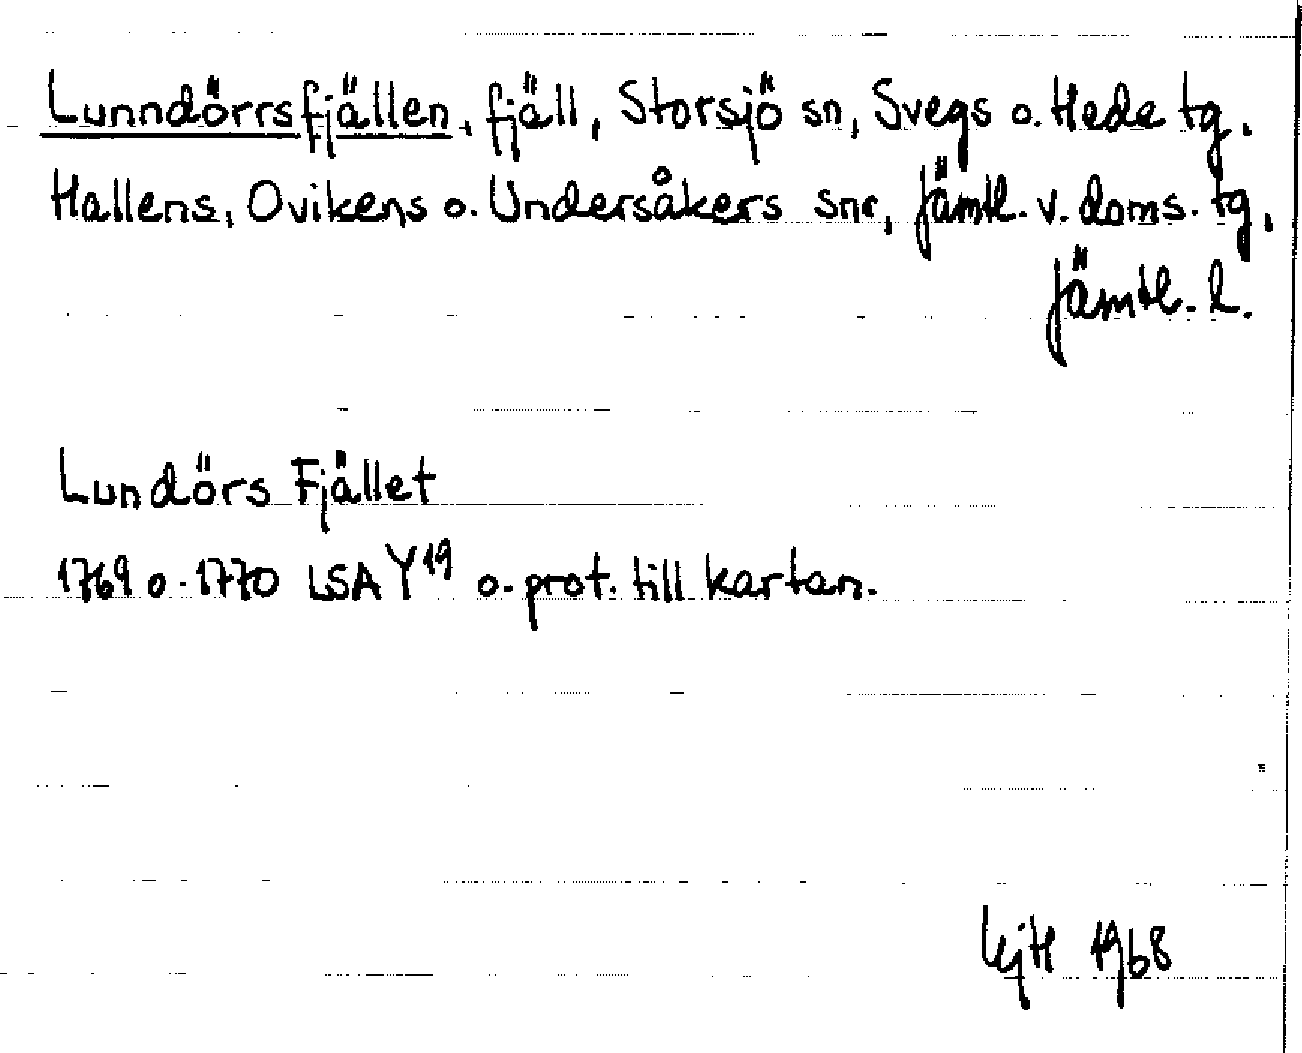 Lunndörrsfjällen, fjäll, Storsjö sn, Svegs o. Hede tg.
Hallens, Ovikens o. Undersåkers snr, Jämtl. v. doms. tg.
Jämtl. l.
Lundörs Fjället
1769 o. 1770 LSA Y19 o. prot. till kartan.
1968